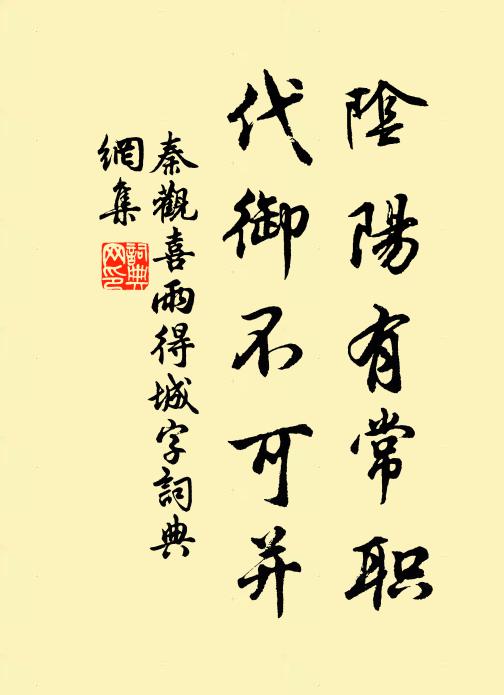 陰陽有常职
代御不可并
秦觀喜雨得城字詞典
網集
詞典
网印